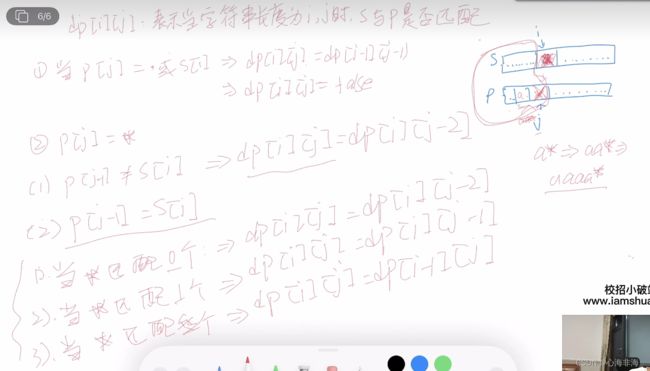 6/6
dp[i][j]. 表示当字符串长度为i,j时. S与P是否匹配
① 当 P[j] = · 或 S[i] ⇒ dp[i][j] = dp[i-1][j-1]
⇒ dp[i][j] = false
② P[j] = *
(1) P[j-1] ≠ S[i] ⇒ dp[i][j] = dp[i][j-2]
(2) P[j-1] = S[i]
1). 当 * 匹配 0个 ⇒ dp[i][j] = dp[i][j-2]
2). 当 * 匹配 1个 ⇒ dp[i][j] = dp[i][j-1]
3). 当 * 匹配多个 ⇒ dp[i][j] = dp[i-1][j]
i
S
P
a
j
a* ⇒ aa* ⇒
aaaa*
校招小破站
www.iamshua